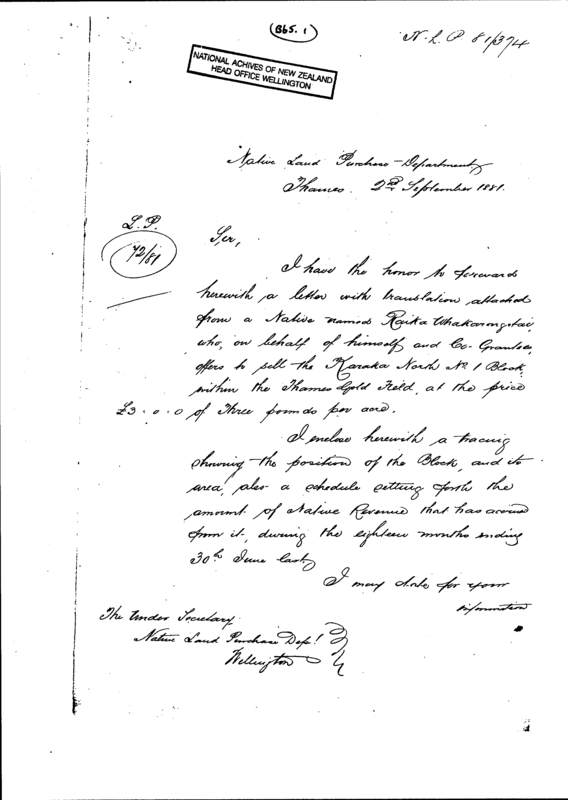 (B65.1)
N.L.P. 81/374
NATIONAL ACHIVES OF NEW ZEALAND
HEAD OFFICE WELLINGTON
Native Land Purchase Department
Thames. 2nd September 1881.
L.P.
72/81
Sir,
I have the honor to forward
herewith a letter with translation attached
from a Native named Raika Whakarongotai
who, on behalf of himself and Co-Grantees,
offers to sell the Karaka North No 1 Block,
within the Thames Gold Field, at the price
£3.0.0 of Three pounds per acre.
I enclose herewith a tracing
showing the position of the Block, and its
area, also a schedule setting forth the
amount of Native Revenue that has accrued
from it, during the eighteen months ending
30th June last.
I may state for your
information
The Under Secretary
Native Land Purchase Dept.
Wellington